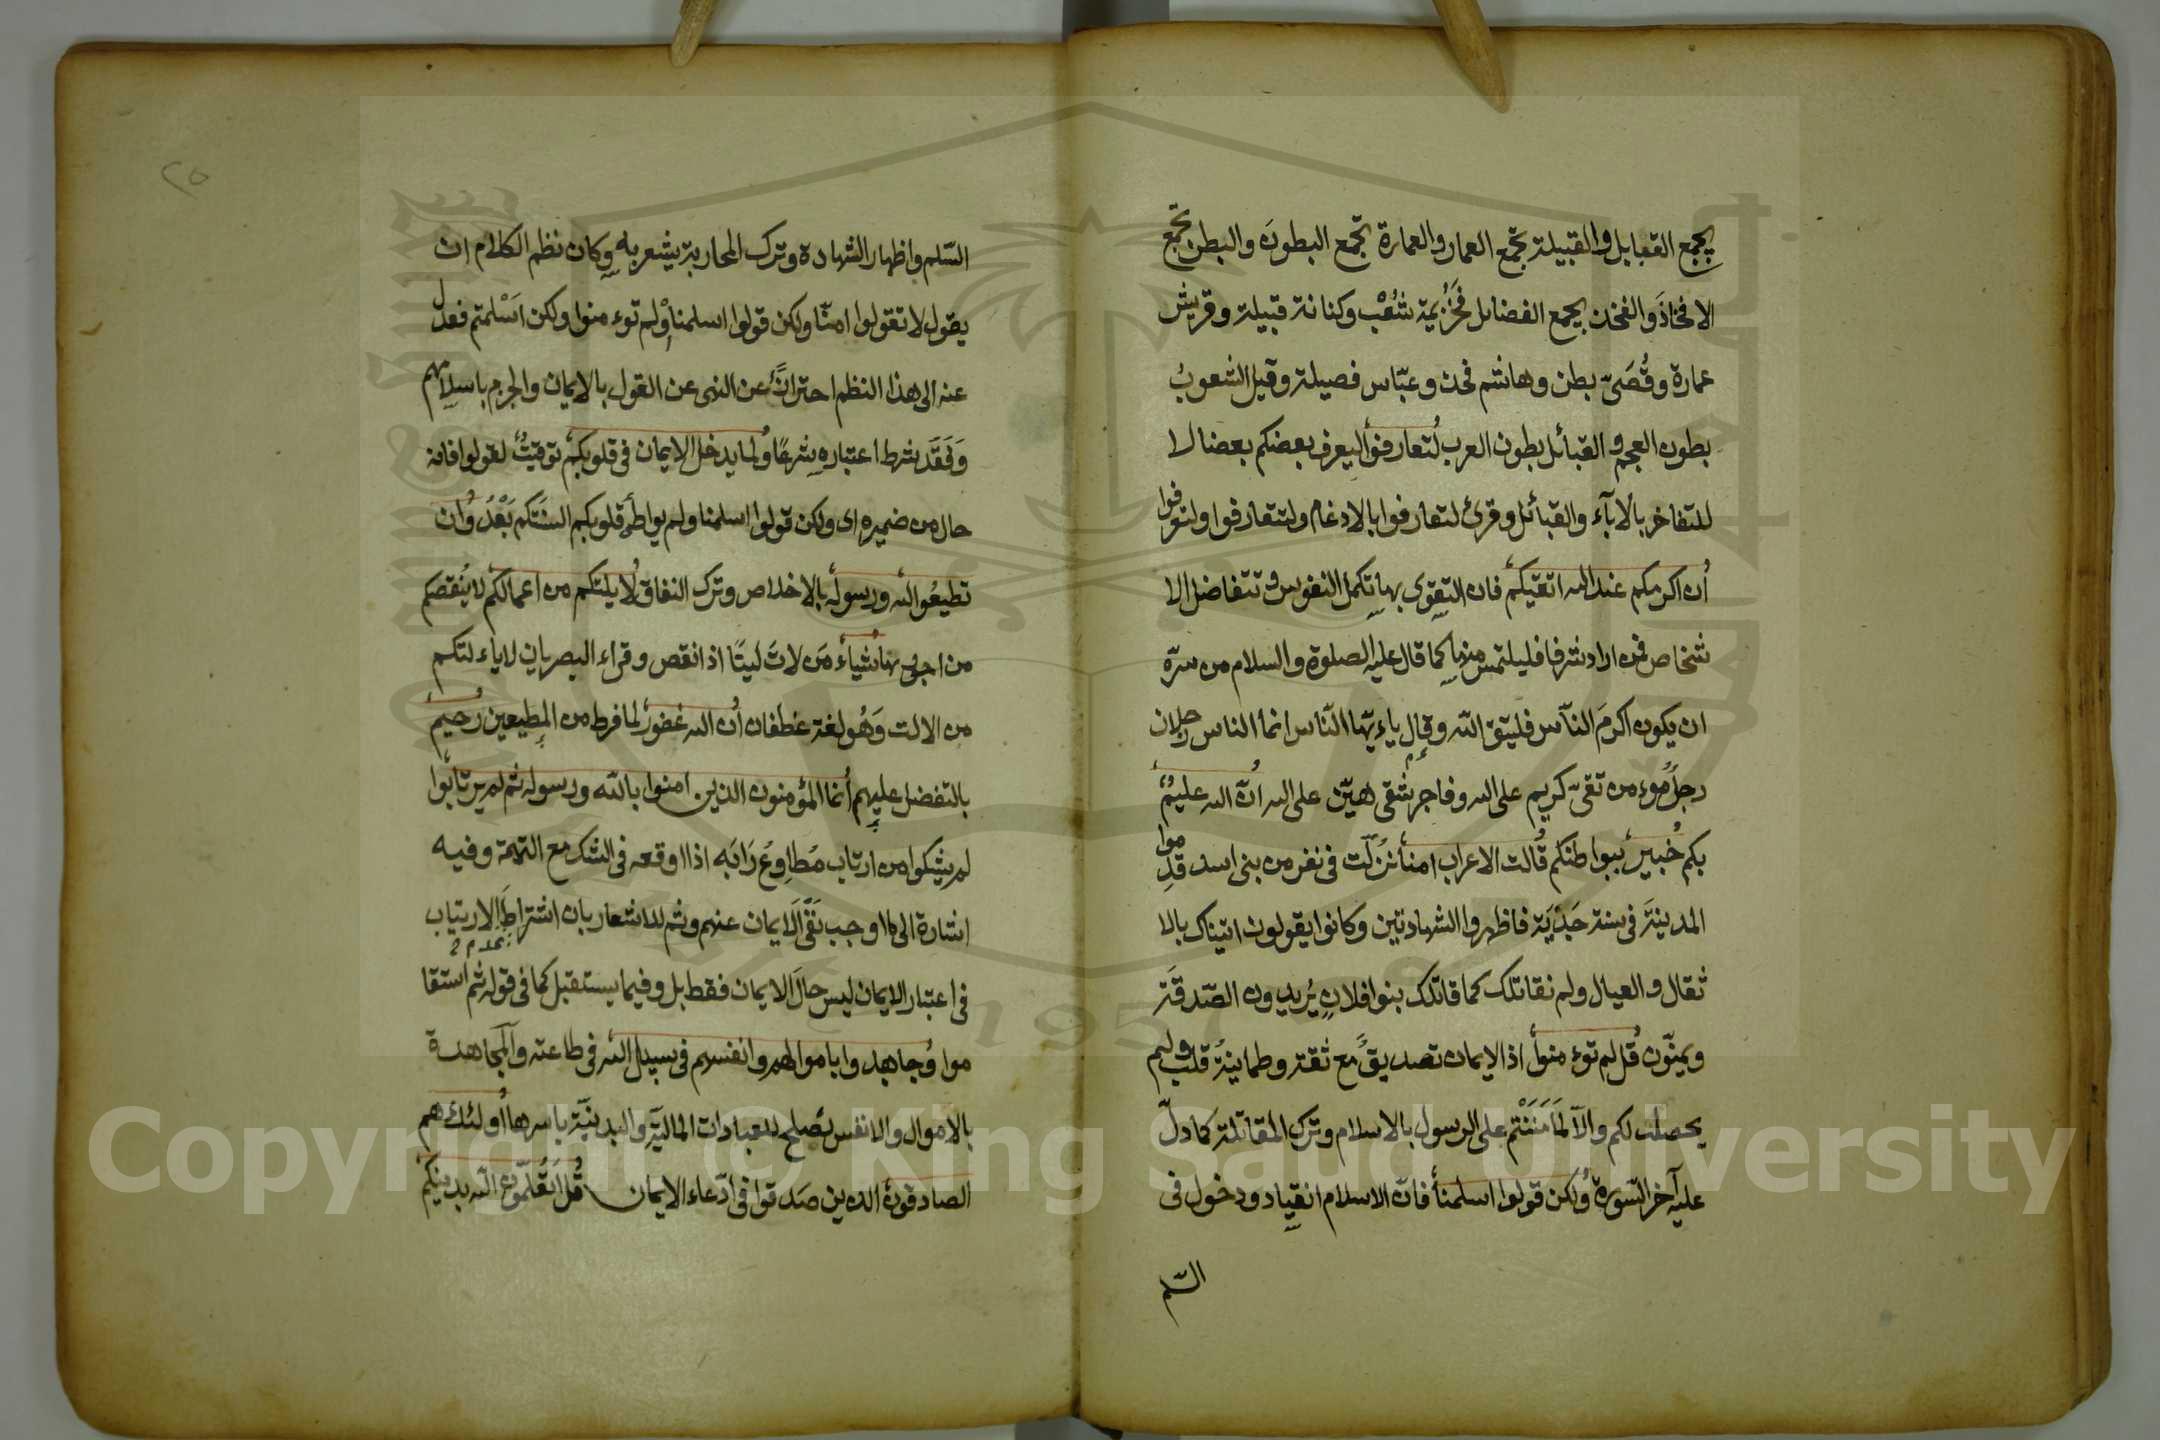 يجمع القبايل والقبيلة تجمع العمار والعمارة تجمع البطون والبطن تجمع
الافخاذ والفخذ يجمع الفضايل فخزيمة شعب وكنانة قبيلة وقريش
عمارة وقصى بطن وهاشم فخذ وعباس فصيلة وقيل الشعوب
بطون العجم والقبائل بطون العرب لتعارفوا ليعرف بعضكم بعضا لا
للتفاخر بالآباء والقبائل وقرئ لتعارفوا بالادغام ولتتعارفوا ولتعرفوا
ان اكرمكم عند الله اتقيكم فان التقوى بها تكمل النفوس وتتفاضل الا
شخاص فمن اراد شرفا فليلتمس منها كما قال عليه الصلوة والسلام من سره
ان يكون اكرم الناس فليتق الله وقال ياءيها الناس انما الناس رجلان
رجل موءمن تقى كريم على الله وفاجر شقى هين على الله ان الله عليم
بكم خبير ببواطنكم قالت الاعراب امنا نزلت فى نفر من بنى اسد قدموا
المدينة فى سنة جدبة فاظهروا الشهادتين وكانوا يقولون اتيناك بالا
ثقال والعيال ولم نقاتلك كما قاتلك بنوا فلان يريدون الصدقة
ويمنون قل لم توءمنوا اذ الايمان تصديق مع ثقة وطمانينة قلب ولم
يحصل لكم والا لما مننتم على الرسول بالاسلام وترك المقاتلة كما دل
عليه آخر السورة ولكن قولوا اسلمنا فان الاسلام انقياد ودخول فى
السلم
٢٥
السلم واظهار الشهادة وترك المحاربة يشعر به وكان نظم الكلام ان
يقول لا تقولوا امنا ولكن قولوا اسلمنا او لم توءمنوا ولكن اسلمتم فعدل
عنه الى هذا النظم احترازا عن النهى عن القول بالايمان والجزم باسلامهم
وقد فقد شرط اعتباره شرعا ولما يدخل الايمان فى قلوبكم توقيت لقولوا فانه
حال من ضميره اى ولكن قولوا اسلمنا ولم يواطئ قلوبكم السنتكم بعد وان
تطيعوا الله ورسوله بالاخلاص وترك النفاق لا يلتكم من اعمالكم لا ينقصكم
من اجورها شياء من لات ليتا اذا نقص وقراء البصريان لاياءلتكم
من الالت وهو لغة غطفان ان الله غفور لما فرط من المطيعين رحيم
بالتفضل عليهم انما المؤمنون الذين امنوا بالله ورسوله ثم لم يرتابوا
لم يشكوا من ارتاب مطاوع رابه اذا اوقعه فى الشك مع التهمة وفيه
اشارة الى ما اوجب نفى الايمان عنهم وثم للاشعار بان اشتراط الارتياب
عدم
فى اعتبار الايمان ليس حال الايمان فقط بل وفيما يستقبل كما فى قوله ثم استقا
موا وجاهدوا باموالهم وانفسهم فى سبيل الله فى طاعته والمجاهدة
بالاموال والانفس يصلح للعبادات المالية والبدنية باسرها اولئك هم
الصادقون الذين صدقوا فى ادعاء الايمان قل اتعلمون الله بدينكم
Copyright © King Saud University
1957